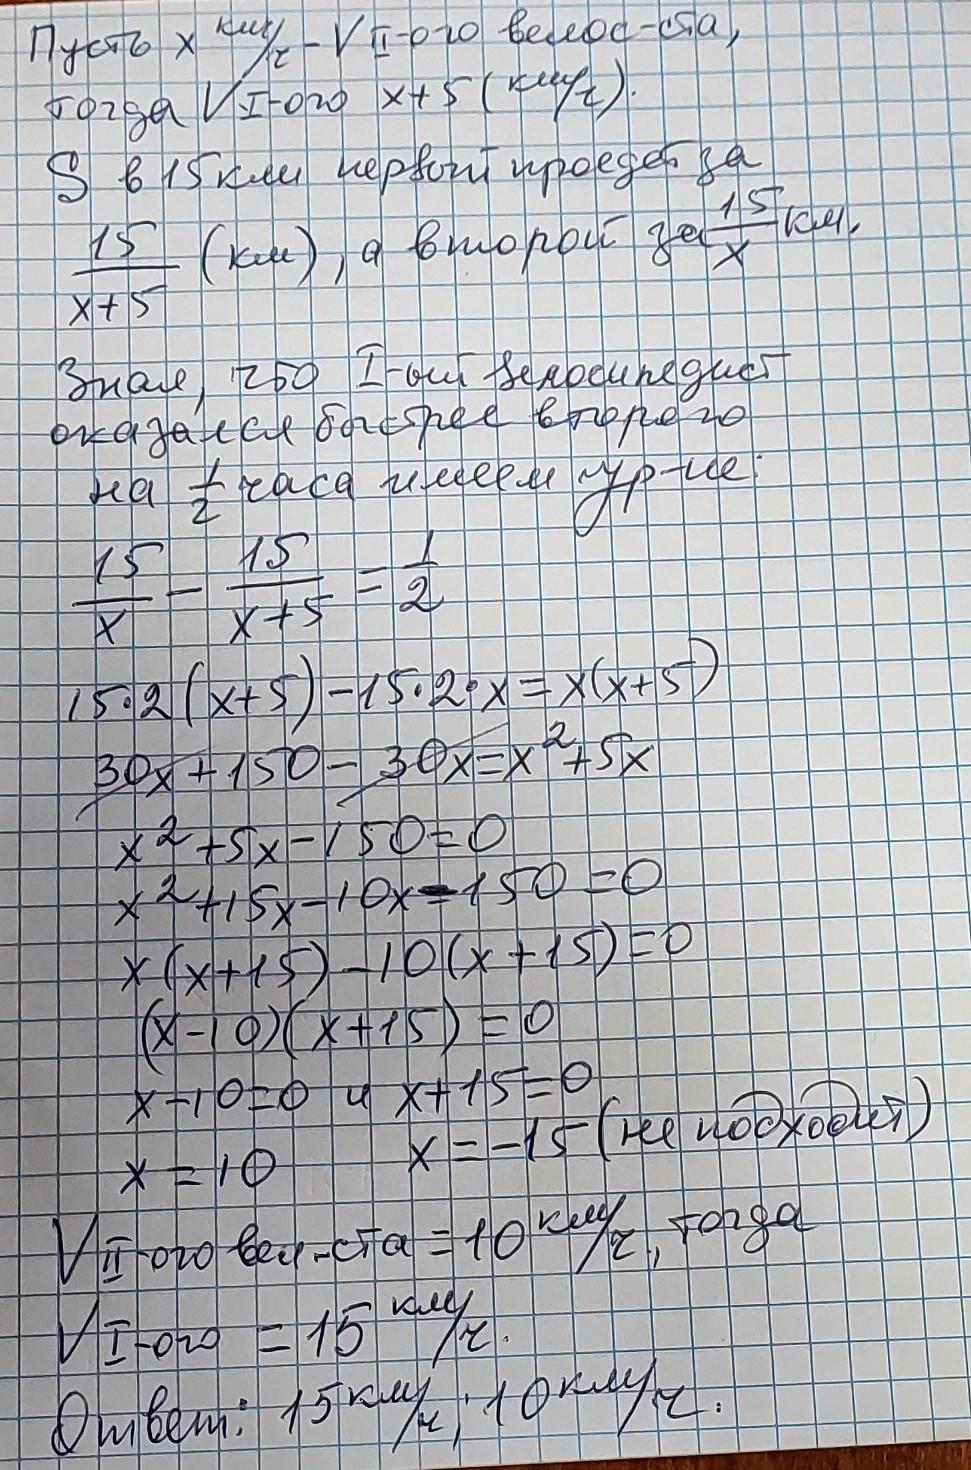 Пусть x км/ч - V II-ого велос-ста,
тогда V I-ого x+5 (км/ч).
S в 15 км первый проедет за
15/(x+5) (км), а второй за 15/x км.
Зная, что I-ый велосипедист
оказался быстрее второго
на 1/2 часа имеем ур-ие:
15/x - 15/(x+5) = 1/2
15·2(x+5)-15·2·x=x(x+5)
30x+150-30x=x²+5x
x²+5x-150=0
x²+15x-10x-150=0
x(x+15)-10(x+15)=0
(x-10)(x+15)=0
x-10=0 и x+15=0
x=10 x=-15 (не подходит)
V II-ого вел-ста = 10 км/ч, тогда
V I-ого = 15 км/ч.
Ответ: 15 км/ч; 10 км/ч.